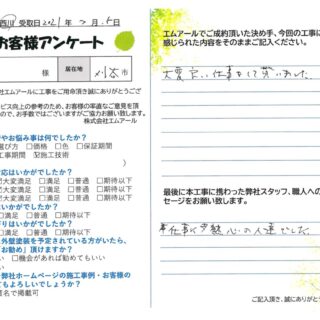 西川 受取日2021年7月5日
お客様アンケート
様 居在地 刈谷市
社エムアールに工事をご用命頂き誠にありがとうござ
ービス向上の参考のため、お客様の率直なご意見を頂
ので、お手数ではございますがご協力お願い致します。
株式会社エムアール
やお悩み事は何でしたか?
選び方 □価格 □色 □保証期間
工事期間 ☑施工技術
応はいかがでしたか?
大変満足 □満足 □普通 □期待以下
はいかがでしたか?
大変満足 □満足 □普通 □期待以下
がりはいかがでしたか?
大変満足 □満足 □普通 □期待以下
外壁塗装を予定されている方がいたら、
お勧め」頂けますか?
い □機会があれば勧めてもいい
弊社ホームページの施工事例・お客様の
てもよろしいでしょうか?
匿名で掲載可
エムアールでご成約頂いた決め手、今回の工事に
感じられた内容をそのままご記入ください。
大変良い仕事をして貰いました
最後に本工事に携わった弊社スタッフ、職人への
セージをお願い致します。
仕事に
心の人達でした
ご記入頂き、誠にありがとう